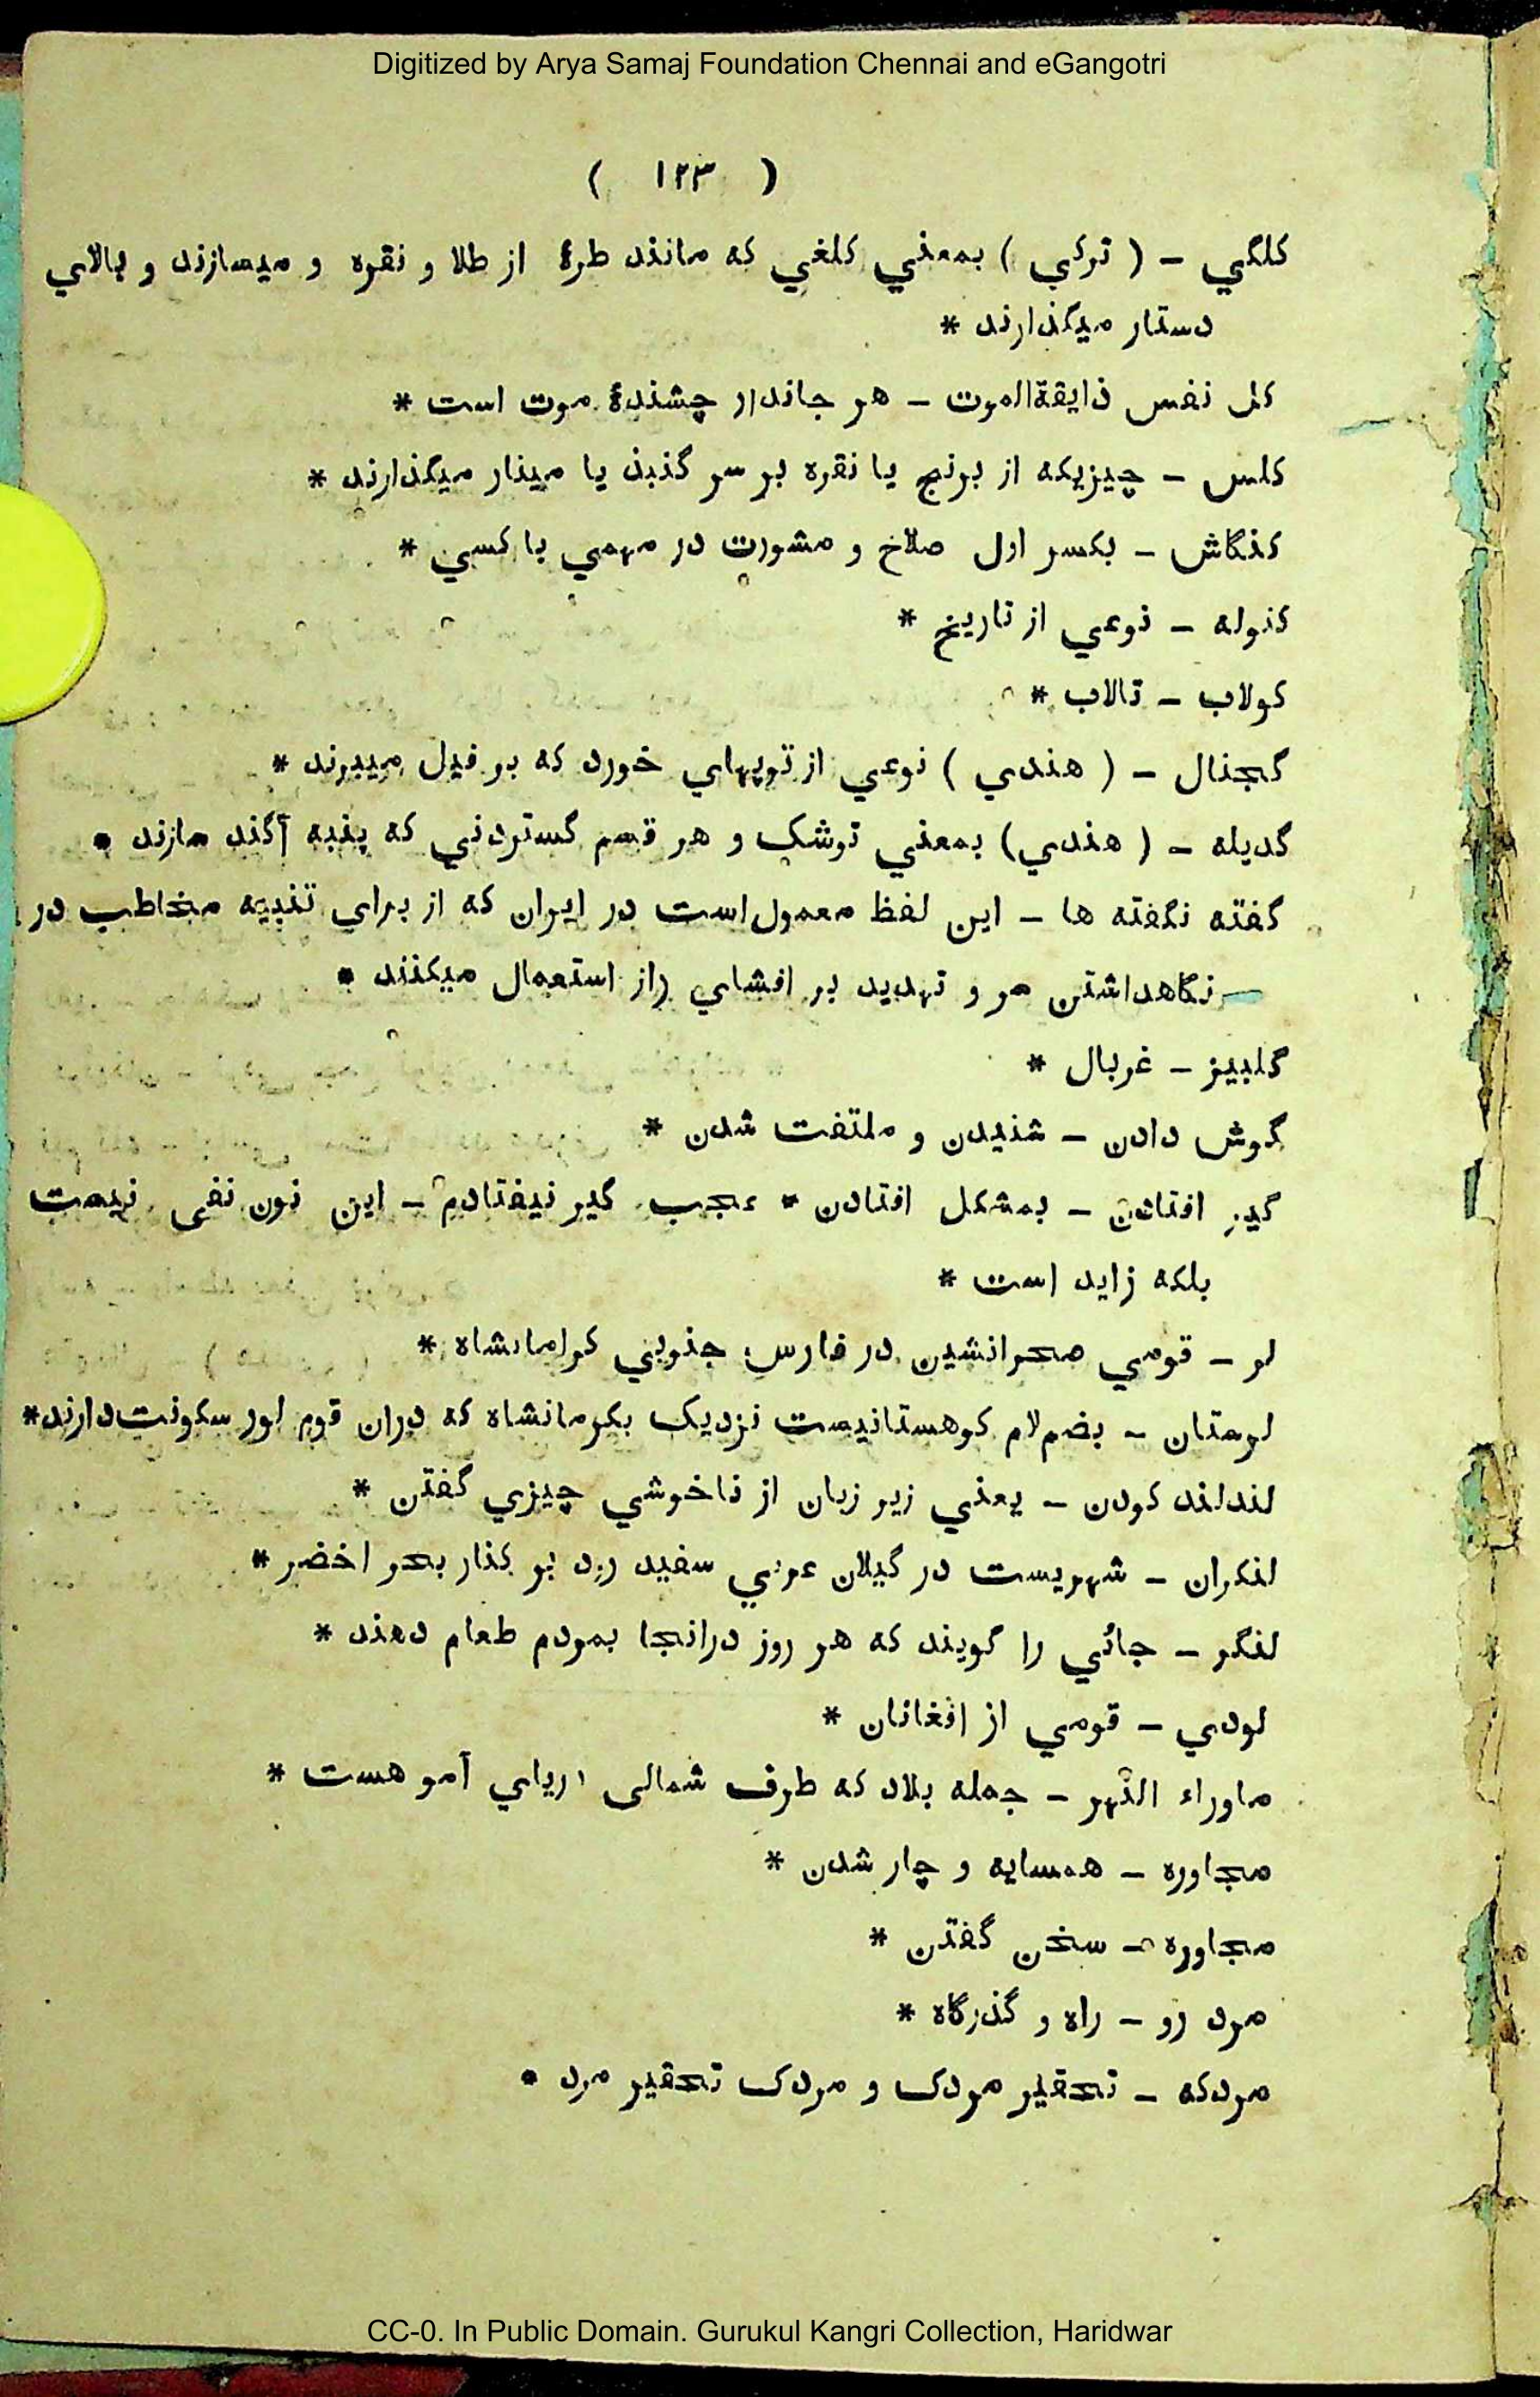 Digitized by Arya Samaj Foundation Chennai and eGangotri
( ١٢٣ )
كلگي – ( تركي ) بمعني كلغي كه مانند طرۀ از طلا و نقره و ميسازند و بالاي
دستار ميگذارند *
كل نفس ذايقةالموت – هر جاندار چشندۀ موت است *
كلس – چيزيكه از برنج يا نقره بر سر گنبذ يا مينار ميگذارند *
كنگاش – بكسر اول صلاح و مشورت در مهمي با كسي *
كنوله – نوعي از تاريخ *
كولاب – تالاب *
گجنال – ( هندي ) نوعي از توپهاي خورد كه بر فيل ميبرند *
گديله – ( هندي ) بمعني توشک و هر قسم گستردني كه پنبه آگند سازند *
گفته نگفته ها – اين لفظ معمول است در ايران كه از براي تنبيه مخاطب در
نگاهداشتن سر و تهديد بر افشاي راز استعمال ميكنند *
گلبيز – غربال *
گوش دادن – شنيدن و ملتفت شدن *
گير افتادن – بمشكل افتادن * عجب گير نيفتادم – اين نون نفي نيست
بلكه زايد است *
لر – قومي صحرانشين در فارس جنوبي كرامانشاه *
لرستان – بضم لام كوهستانيست نزديک بكرمانشاه كه دران قوم لور سكونت دارند *
لندلند كردن – يعني زير زبان از ناخوشي چيزي گفتن *
لنكران – شهريست در گيلان عربي سفيد رود بر كنار بحر اخضر *
لنگر – جائي را گويند كه هر روز درانجا بمردم طعام دهند *
لودي – قومي از افغانان *
ماوراء النّهر – جمله بلاد كه طرف شمالي درياي آمو هست *
مجاوره – همسايه و چار شدن *
محاوره – سخن گفتن *
مرد رو – راه و گذرگاه *
مردكه – تحقير مردک و مردک تحقير مرد *
CC-0. In Public Domain. Gurukul Kangri Collection, Haridwar